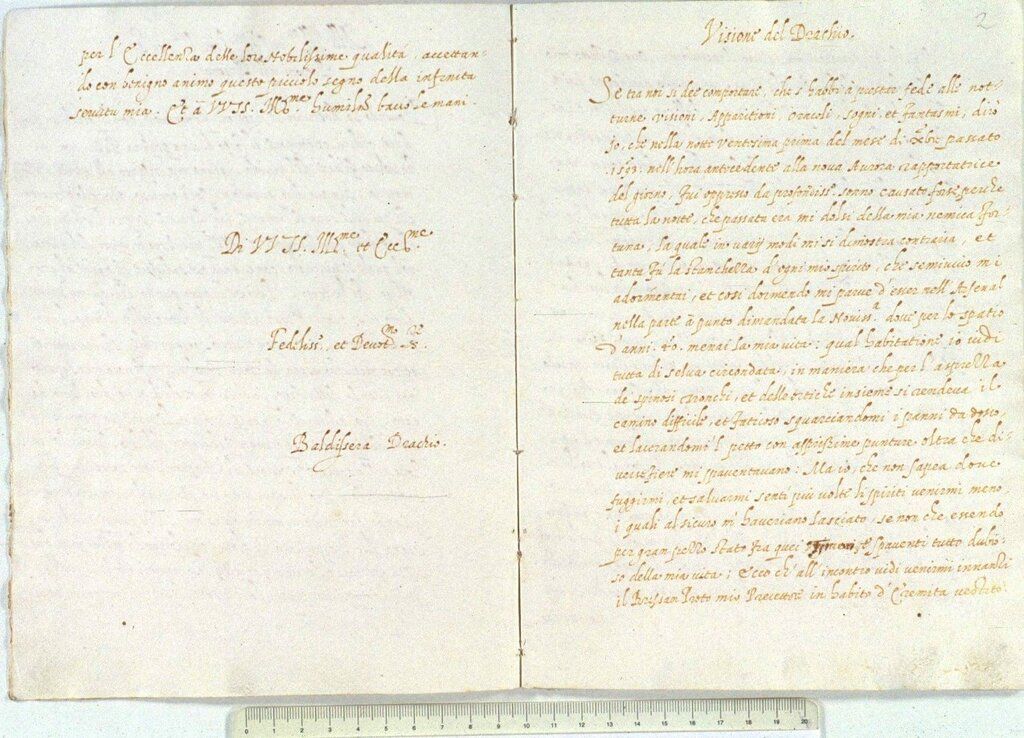 per l'Eccellenza delle loro Nobilissime qualità, accettan-
do con benigno animo questo picciolo segno della infinita
servitù mia. Et à VV.SS. Ill.me humilm.te bascio le mani.
Di VV.SS. Ill.me et Ecc.me
Fedeliss. et Devot.mo S.
Baldissera Drachio.
2
Visione del Drachio.
Se tra noi si dee comportare, che s'habbi à prestar fede alle not-
turne visioni, Apparitioni, Oracoli, sogni et fantasmi, dirò
io, che nella notte ventesima prima del mese di Xbre passato
1593. nell'hora antecedente alla nova Aurora rapportatrice
del giorno, fui oppresso da profondiss. sonno causato forse perche
tutta la notte, che passata era mi dolsi della mia nemica for-
tuna, la quale in varij modi mi si dimostra contraria, et
tanta fù la stanchezza d'ogni mio spirito, che semivivo mi
adormentai, et cosi dormendo mi parve d'esser nell'Arsenal
nella parte à punto dimandata la Noviss.a dove per lo spatio
d'anni .40. menai la mia vita: qual habitatione io vidi
tutta di selva circondata, in maniera che per l'asprezza
de spinosi Bronchi, et delle ortiche insieme si rendeva il
camino difficile, et faticoso squarciandomi i panni da dosso,
et lacerandomi 'l petto con asprissime punture oltra che di-
verse fiere mi spaventavano: Ma io, che non sapea dove
fuggirmi, et salvarmi senti più volte li spiriti venirmi meno
i quali al sicuro m'haveriano lasciato, se non che essendo
per gran pezzo stato fra quei timori et spaventi tutto dubio-
so della mia vita; Ecco ch'all'incontro vidi venirmi innanzi
il Bressan Proto mio Precettore in habito d'Eremita vestito.